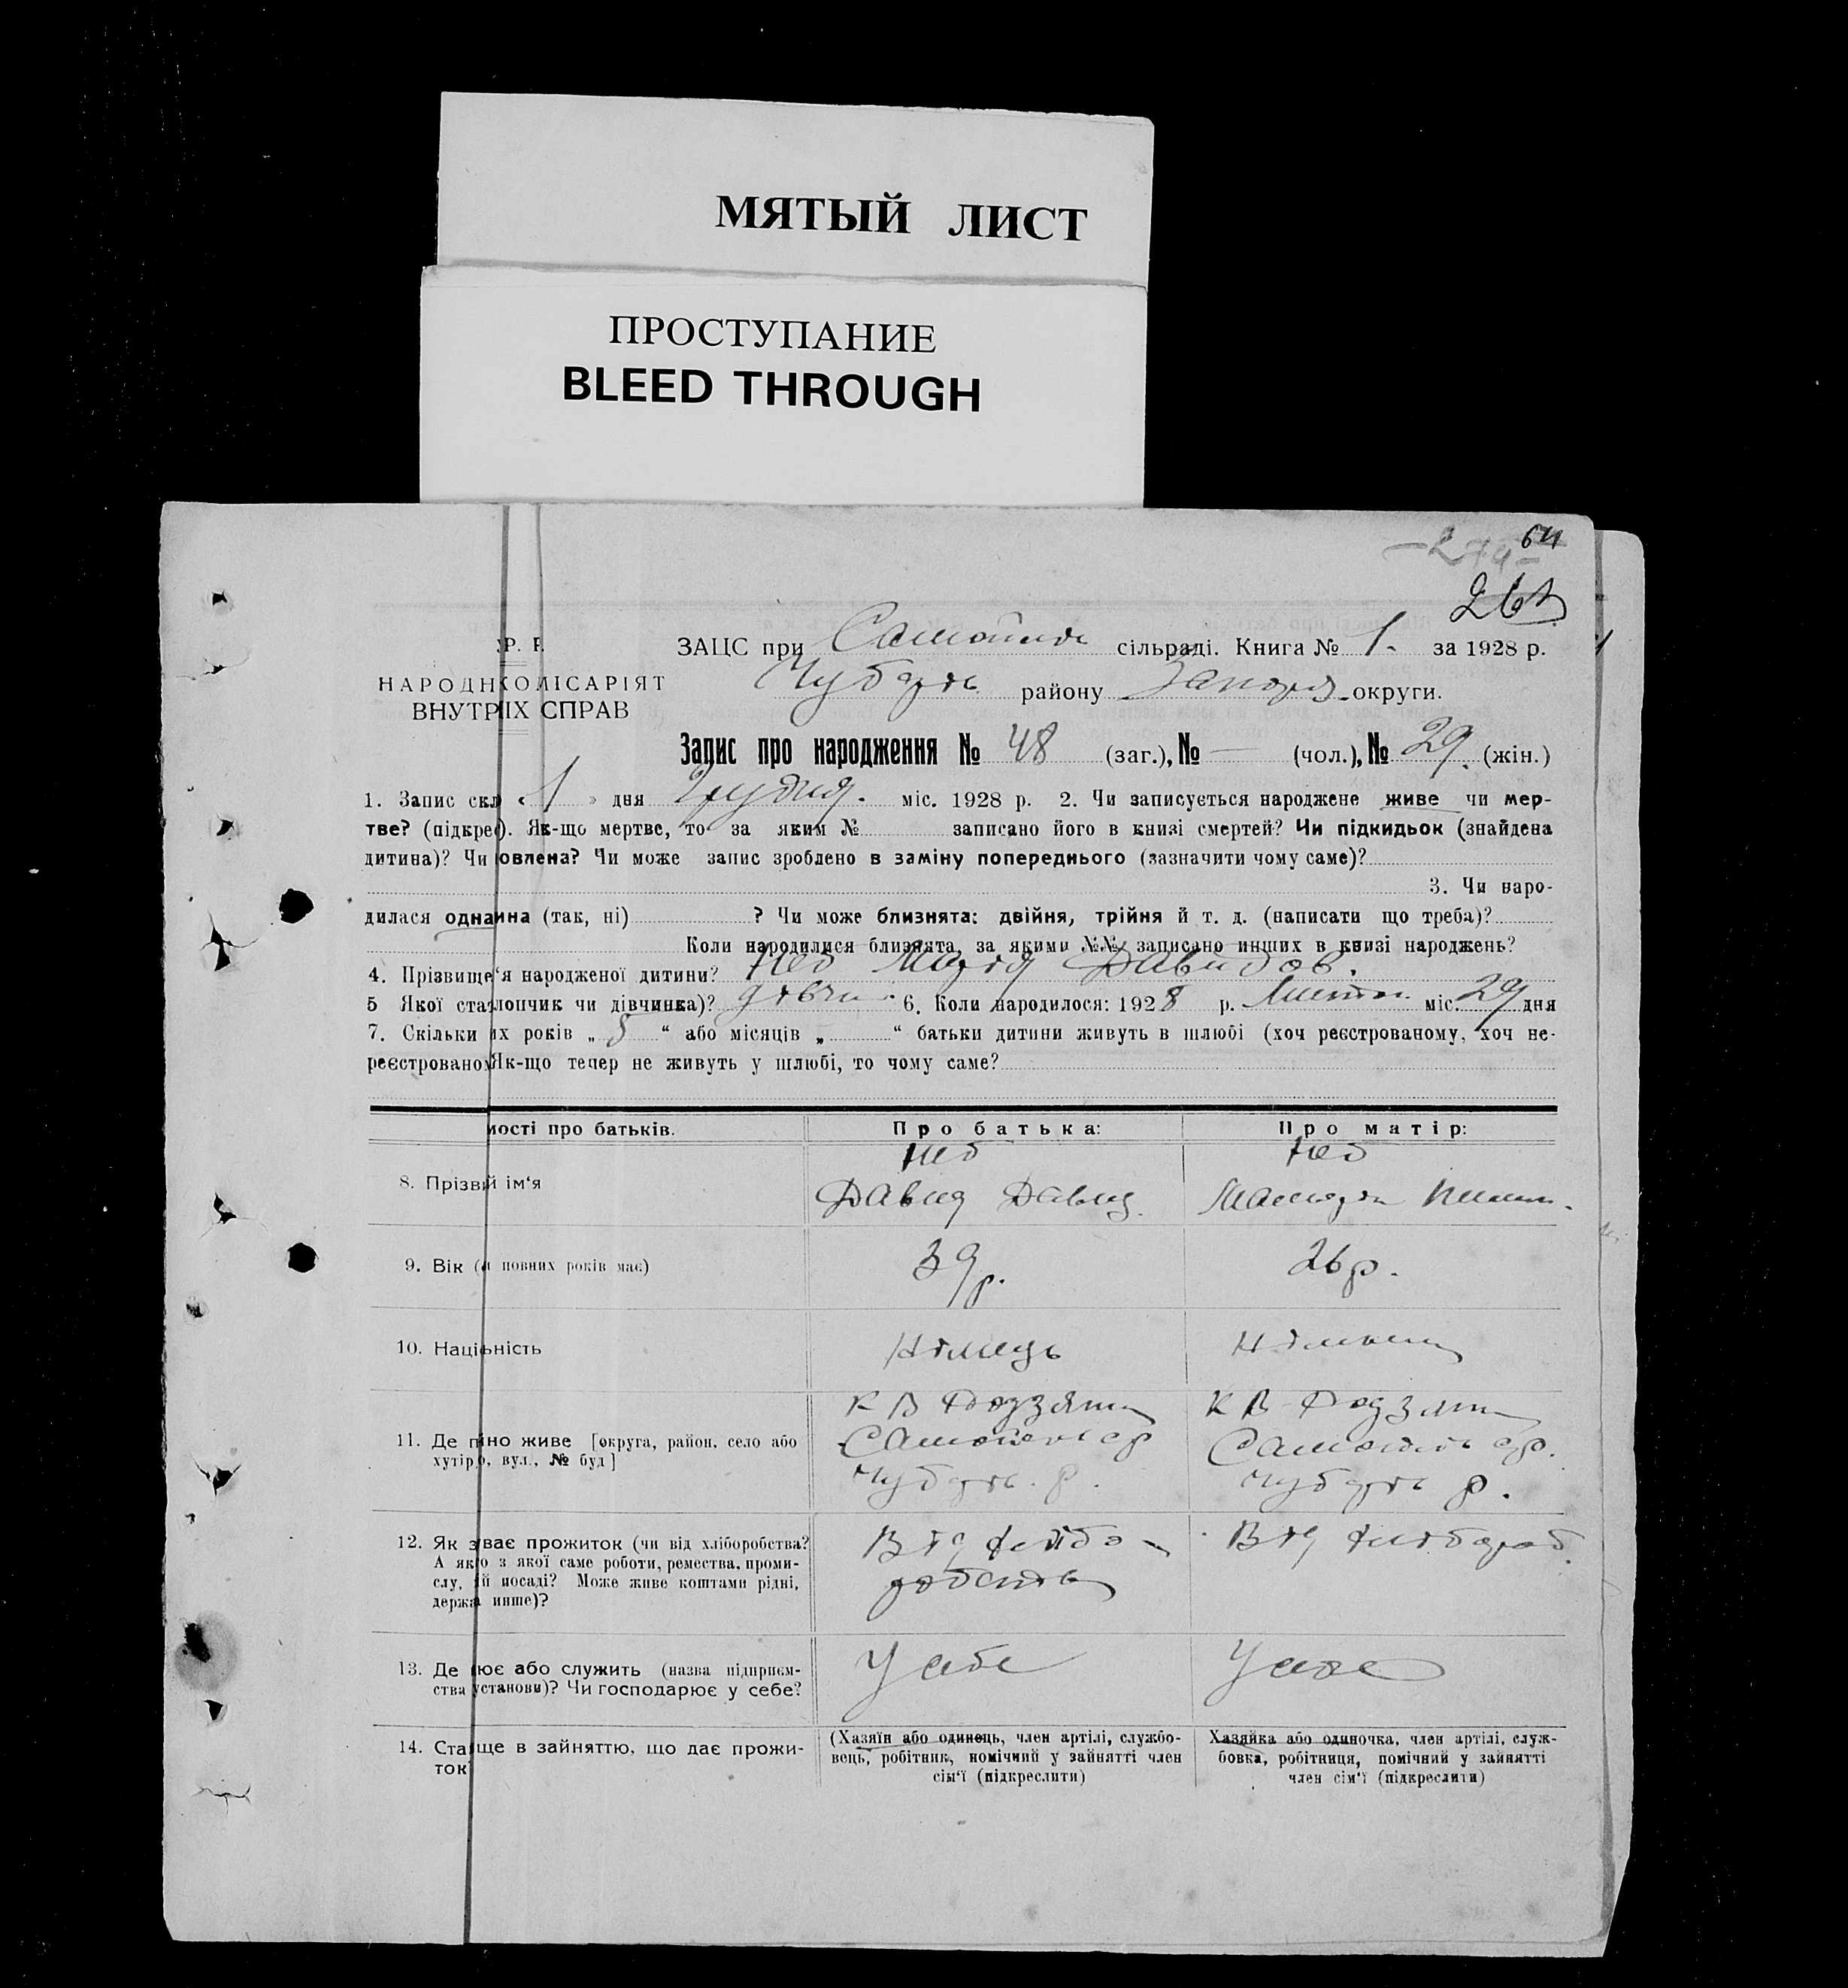 МЯТЫЙ ЛИСТ
ПРОСТУПАНИЕ
BLEED THROUGH
64
Р. Р.
ЗАЦС при сільраді. Книга № 1. за 1928 р.
НАРОДН КОМІСАРІЯТ
Чубарь району Запор. округи.
ВНУТР ІХ СПРАВ
Запис про народження № 48 (заг.), № — (чол.), № 29. (жін.)
1. Запис скл « 1 » дня Грудня. міс. 1928 р. 2. Чи записується народжене живе чи мер-
тве? (підкрес). Як-що мертве, то за яким № записано його в книзі смертей? Чи підкидьок (знайдена
дитина)? Чи овлена? Чи може запис зроблено в заміну попереднього (зазначити чому саме)?
3. Чи наро-
дилася одна ина (так, ні) ? Чи може близнята: двійня, трійня й т. д. (написати що треба)?
Коли народилися близнята, за якими №№ записано инших в книзі народжень?
4. Прізвище 'я народженої дитини? Давидов.
5 Якої ста хлопчик чи дівчинка)? дівчи. 6. Коли народилося: 1928 р. Листоп. міс. 29 дня
7. Скільки їх років „ 8 “ або місяців „ “ батьки дитини живуть в шлюбі (хоч реєстрованому, хоч не-
реєстровано Як-що тепер не живуть у шлюбі, то чому саме?
мості про батьків. Про батька: Про матір:
8. Прізв й ім'я
Давид Давид.
9. Вік ( повних років має) 39 р. 26 р.
10. Наці ьність Німець
11. Де п но живе [округа, район, село або
хутір , вул., № буд]
Чубарь. р. Чубарь р.
12. Як з ває прожиток (чи від хліборобства?
А як о з якої саме роботи, ремества, проми-
слу, ій посаді? Може живе коштами рідні,
держа инше)?
Від хлібо-
робства
Від хлібороб.
13. Де ює або служить (назва підприєм-
ства установи)? Чи господарює у себе?
У себе У себе
14. Ста ще в зайняттю, що дає прожи-
ток
(Хазяїн або одинець, член артілі, службо-
вець, робітник, помічний у зайнятті член
сім'ї (підкреслити)
Хазяйка або одиночка, член артілі, служ-
бовка, робітниця, помічний у зайнятті
член сім'ї (підкреслити)